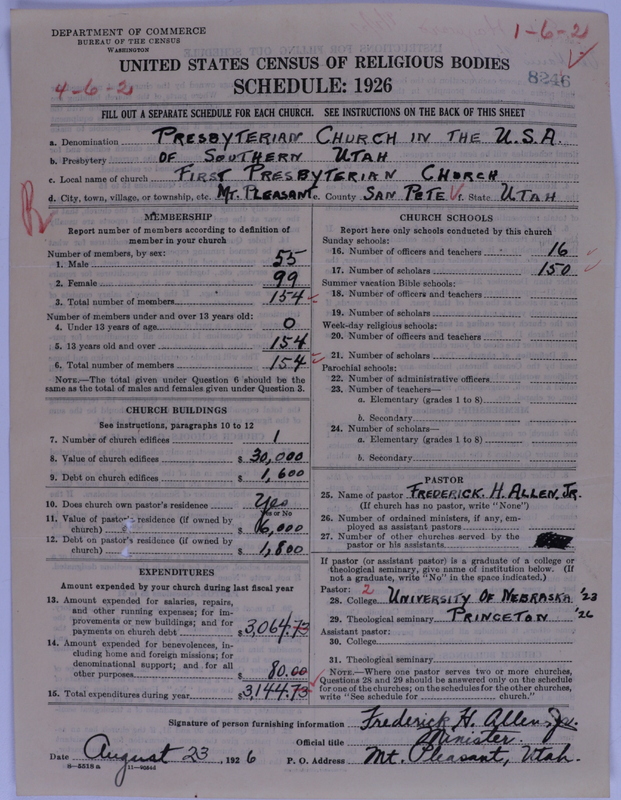 DEPARTMENT OF COMMERCE
BUREAU OF THE CENSUS
WASHINGTON
1-6-2
UNITED STATES CENSUS OF RELIGIOUS BODIES
8246
4-6-2
SCHEDULE: 1926
FILL OUT A SEPARATE SCHEDULE FOR EACH CHURCH. SEE INSTRUCTIONS ON THE BACK OF THIS SHEET
a. Denomination PRESBYTERIAN CHURCH IN THE U.S.A.
b. Presbytery OF SOUTHERN UTAH
c. Local name of church FIRST PRESBYTERIAN CHURCH
d. City, town, village, or township, etc. MT. PLEASANT e. County SAN PETE f. State UTAH
MEMBERSHIP
Report number of members according to definition of
member in your church
Number of members, by sex:
1. Male 55
2. Female 99
3. Total number of members 154
Number of members under and over 13 years old:
4. Under 13 years of age 0
5. 13 years old and over 154
6. Total number of members 154
NOTE.—The total given under Question 6 should be
same as the total of males and females given under Question 3.
CHURCH BUILDINGS
See instructions, paragraphs 10 to 12
7. Number of church edifices 1
8. Value of church edifices $ 30,000
9. Debt on church edifices $ 1,600
10. Does church own pastor's residence Yes
Yes or No
11. Value of pastor's residence (if owned by
church) $ 6,000
12. Debt on pastor's residence (if owned by
church) $ 1,800
EXPENDITURES
Amount expended by your church during last fiscal year
13. Amount expended for salaries, repairs,
and other running expenses; for im-
provements or new buildings; and for
payments on church debt $ 3,064.73
14. Amount expended for benevolences, in-
cluding home and foreign missions; for
denominational support; and for all
other purposes $ 80.00
15. Total expenditures during year $ 3144.73
CHURCH SCHOOLS
Report here only schools conducted by this church
Sunday schools:
16. Number of officers and teachers 16
17. Number of scholars 150
Summer vacation Bible schools:
18. Number of officers and teachers
19. Number of scholars
Week-day religious schools:
20. Number of officers and teachers
21. Number of scholars
Parochial schools:
22. Number of administrative officers
23. Number of teachers—
a. Elementary (grades 1 to 8)
b. Secondary
24. Number of scholars—
a. Elementary (grades 1 to 8)
b. Secondary
PASTOR
25. Name of pastor FREDERICK. H. ALLEN, JR.
(If church has no pastor, write "None")
26. Number of ordained ministers, if any, em-
ployed as assistant pastors
27. Number of other churches served by the
pastor or his assistants
If pastor (or assistant pastor) is a graduate of a college or
theological seminary, give name of institution below. (If
not a graduate, write "No" in the space indicated.)
Pastor: 2
28. College UNIVERSITY OF NEBRASKA '23
29. Theological seminary PRINCETON '26
Assistant pastor:
30. College
31. Theological seminary
NOTE.—Where one pastor serves two or more churches,
Questions 28 and 29 should be answered only on the schedule
for one of the churches; on the schedules for the other churches,
write "See schedule for church."
Signature of person furnishing information Frederick H. Allen, Jr.
Official title Minister.
Date August 23, 1926 P. O. Address Mt. Pleasant, Utah.
8-5518 a